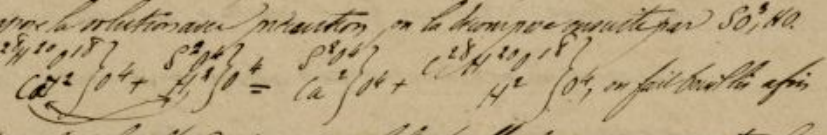 la solution avec précaution, on la décompose ensuite par SO³, HO.
C²⁸H²⁰O¹⁸ } S²O⁴ } S²O⁴ } C²⁸H²⁰O¹⁸ }
Ca² } O⁴ + H² } O⁴ = Ca² } O⁴ + H² } O⁴, on fait bouillir afin